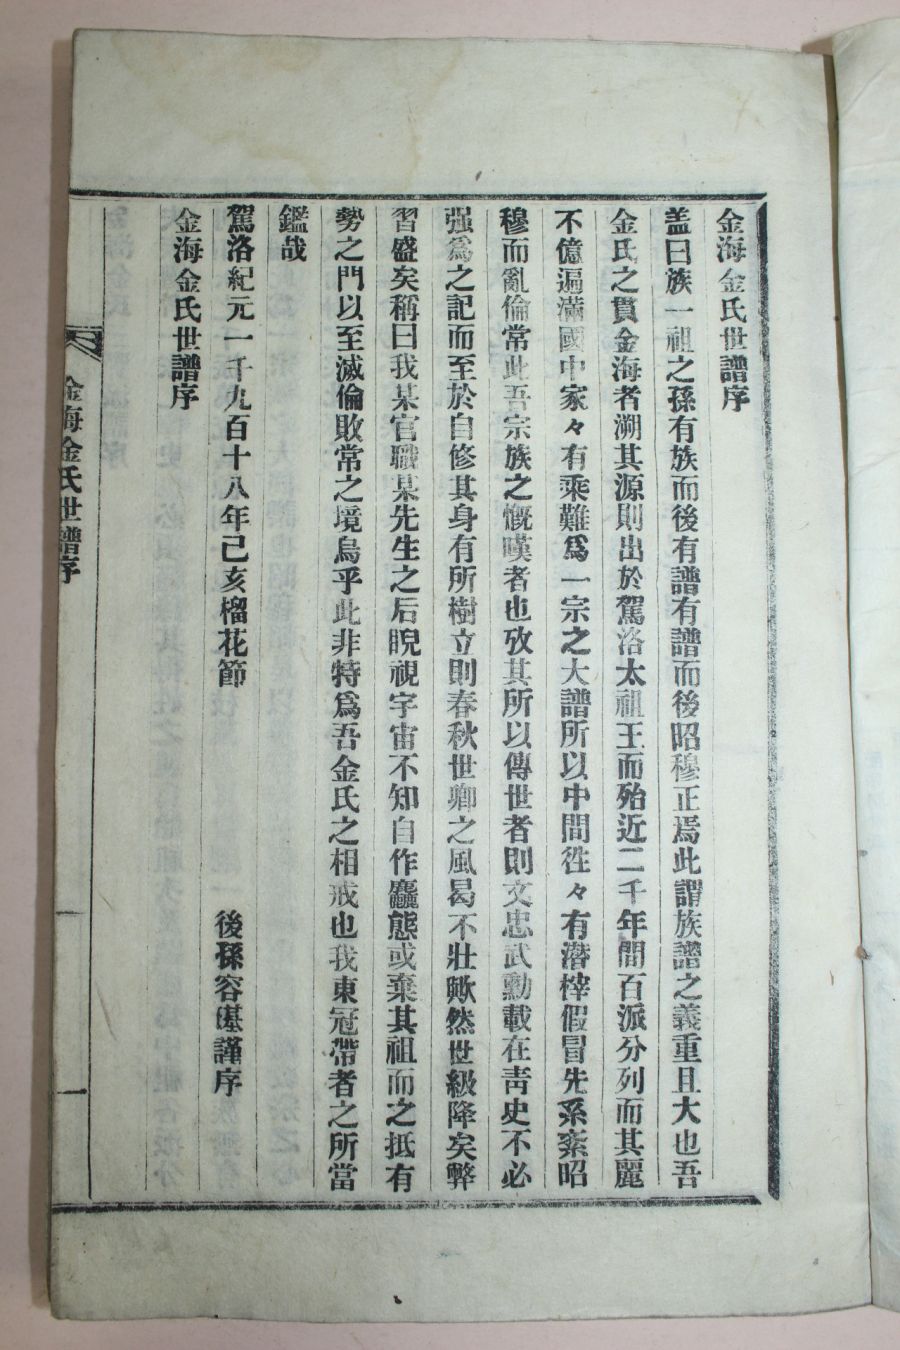 金海金氏世譜序
盖曰族一祖之孫有族而後有譜有譜而後昭穆正焉此謂族譜之義重且大也吾
金氏之貫金海者溯其源則出於駕洛太祖王而殆近二千年間百派分列而其麗
不億遍滿國中家々有乘難爲一宗之大譜所以中間徃々有潛榟假冒先系紊昭
穆而亂倫常此吾宗族之慨嘆者也攷其所以傳世者則文忠武勳載在靑史不必
强爲之記而至於自修其身有所樹立則春秋世卿之風曷不壯歟然世級降矣弊
習盛矣稱曰我某官職某先生之后睨視宇宙不知自作麤態或棄其祖而之抵有
勢之門以至滅倫敗常之境烏乎此非特爲吾金氏之相戒也我東冠帶者之所當
鑑哉
駕洛紀元一千九百十八年己亥榴花節
後孫容謹序
金海金氏世譜序
金海金氏世譜序
一